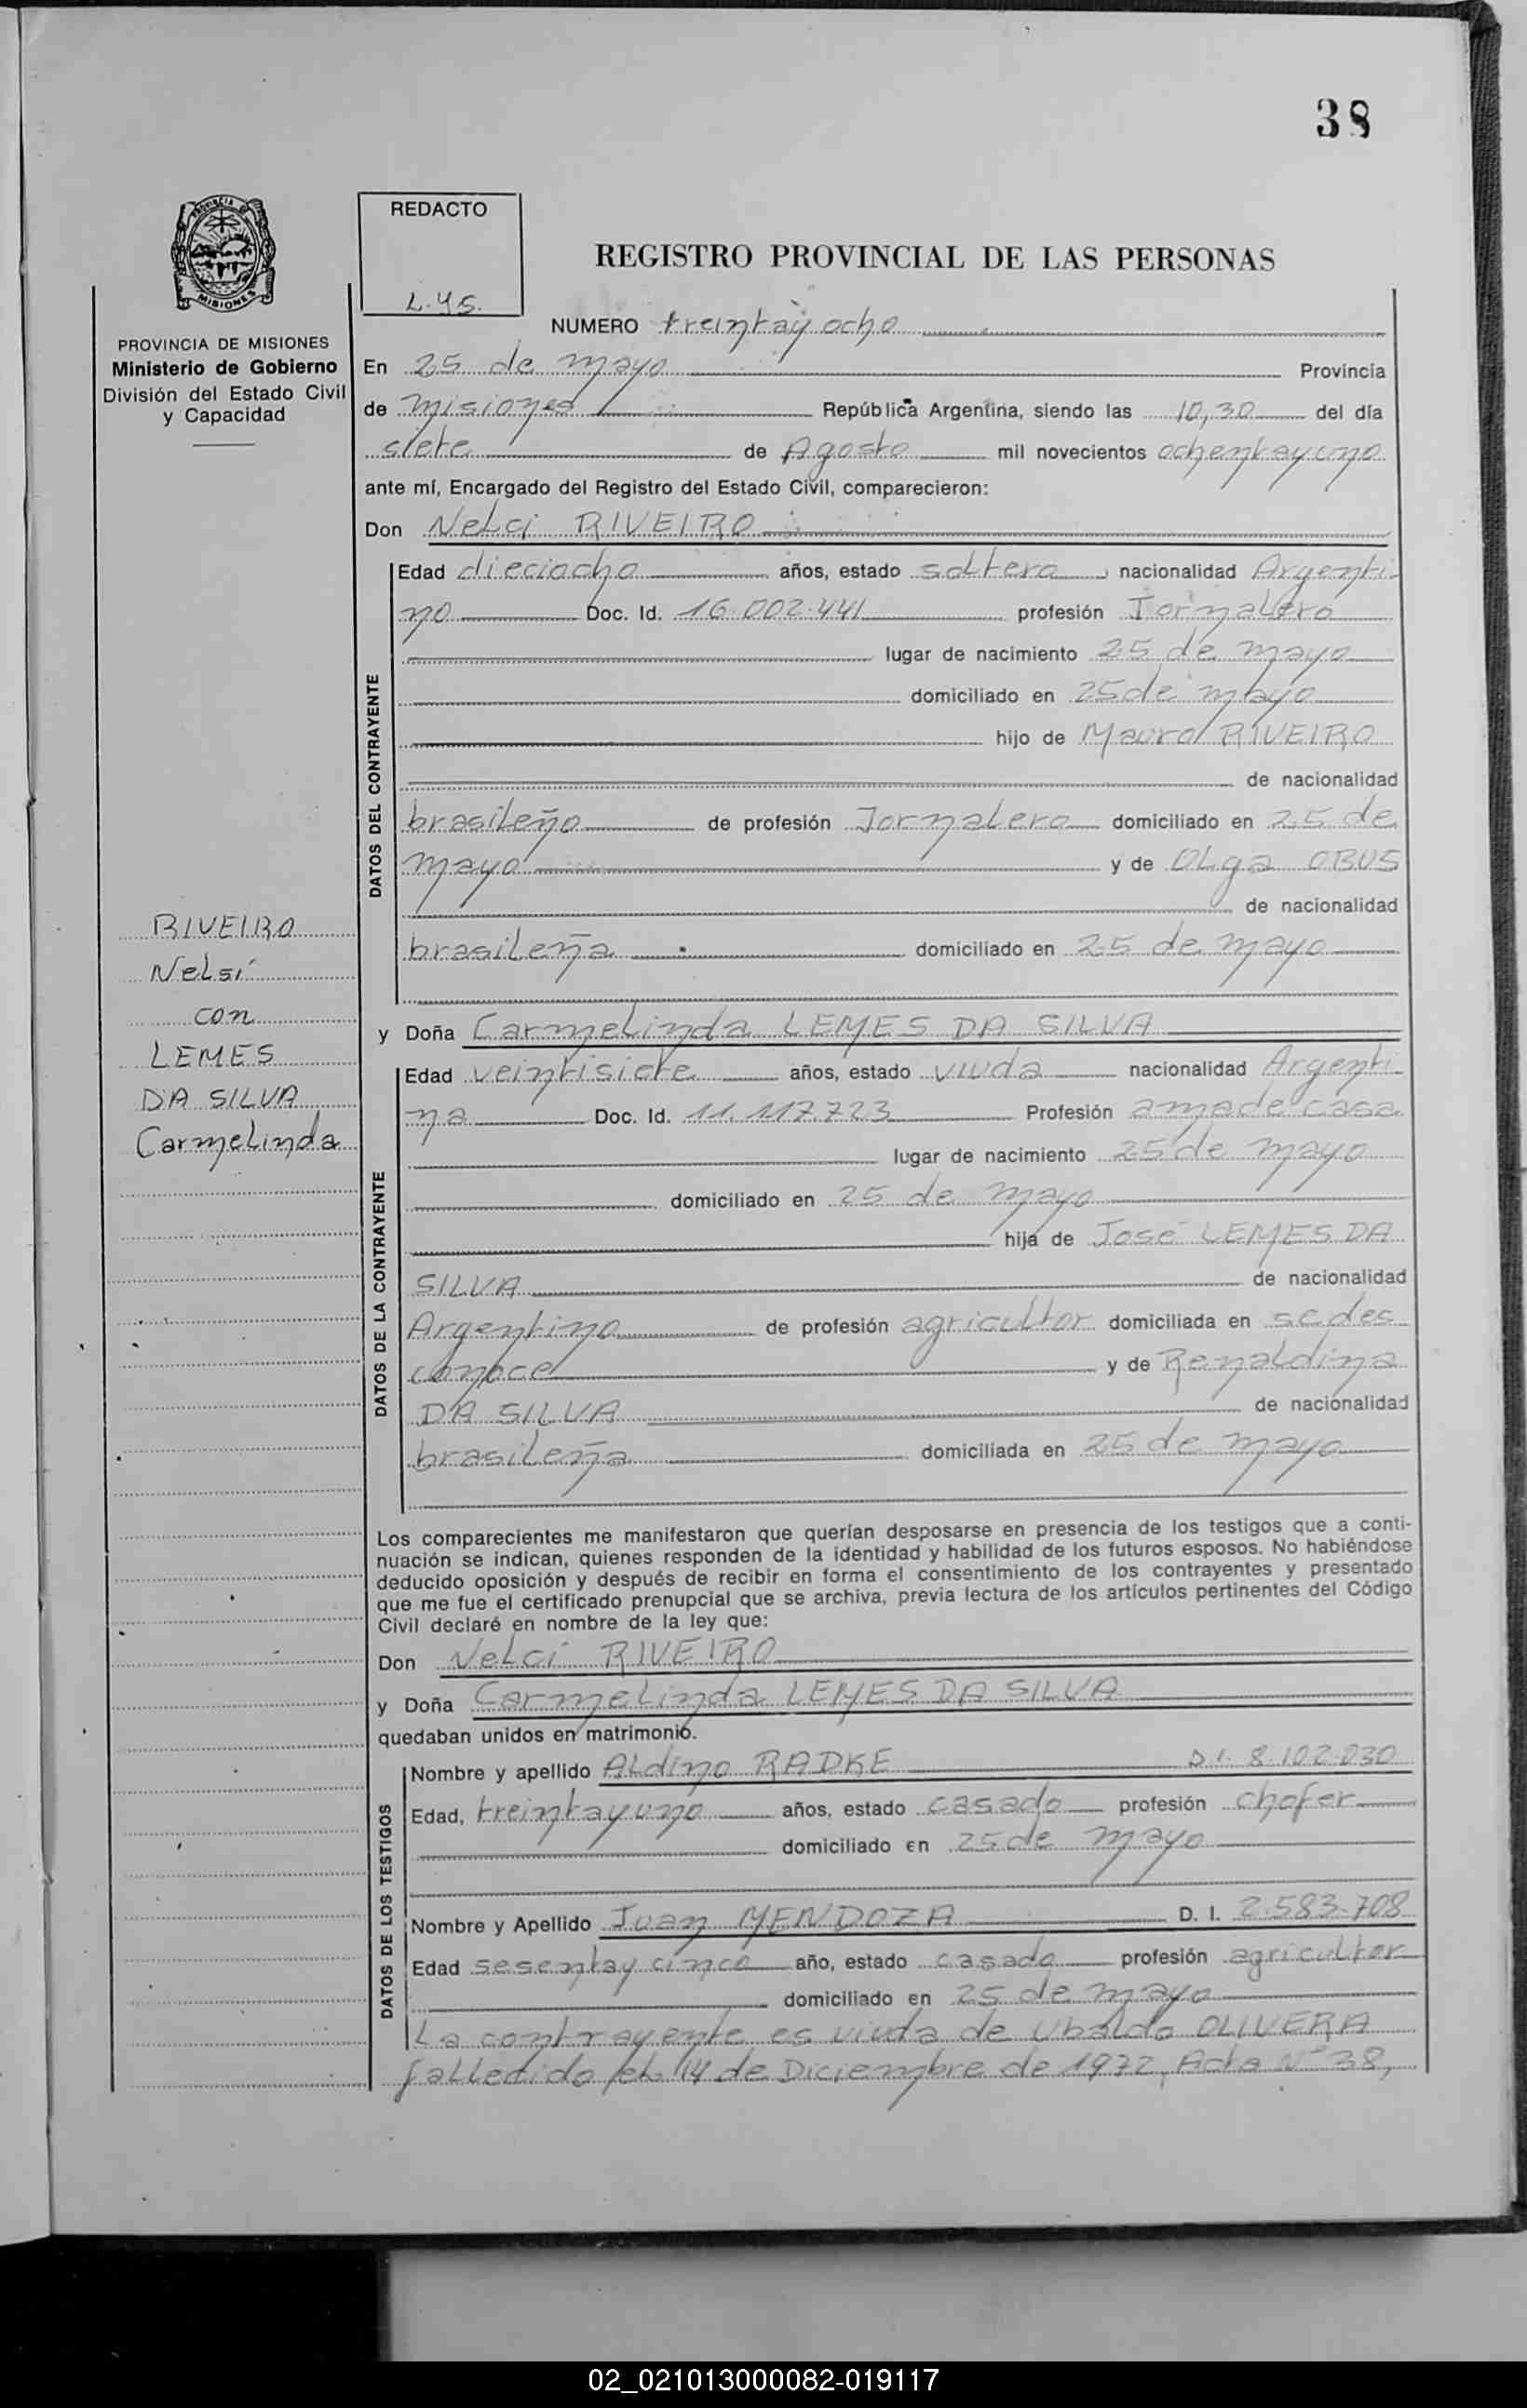 38
REDACTO
L.45.
REGISTRO PROVINCIAL DE LAS PERSONAS
PROVINCIA DE MISIONES
Ministerio de Gobierno
División del Estado Civil
y Capacidad
NUMERO treintay ocho
En 25 de mayo Provincia
de misiones República Argentina, siendo las 10,30 del día
siete de Agosto mil novecientos ochentayuno
ante mí, Encargado del Registro del Estado Civil, comparecieron:
Don Nelci RIVEIRO
DATOS DEL CONTRAYENTE
Edad dieciocho años, estado soltero nacionalidad Argenti-
no Doc. Id. 16.002.441 profesión Jornalero
lugar de nacimiento 25 de mayo
domiciliado en 25 de mayo
hijo de Mauro RIVEIRO
de nacionalidad
brasileño de profesión Jornalero domiciliado en 25 de
mayo y de Olga OBUS
de nacionalidad
brasileña domiciliado en 25 de mayo
RIVEIRO
Nelsí
con
LEMES
DA SILVA
Carmelinda
y Doña Carmelinda LEMES DA SILVA
DATOS DE LA CONTRAYENTE
Edad veintisiete años, estado viuda nacionalidad Argenti-
na Doc. Id. 11.117.723 Profesión ama de casa
lugar de nacimiento 25 de mayo
domiciliado en 25 de mayo
hija de José LEMES DA
SILVA de nacionalidad
Argentino de profesión agricultor domiciliada en sedes
conoce y de Renaldina
DA SILVA de nacionalidad
brasileña domiciliada en 25 de mayo
Los comparecientes me manifestaron que querían desposarse en presencia de los testigos que a conti-
nuación se indican, quienes responden de la identidad y habilidad de los futuros esposos. No habiéndose
deducido oposición y después de recibir en forma el consentimiento de los contrayentes y presentado
que me fue el certificado prenupcial que se archiva, previa lectura de los artículos pertinentes del Código
Civil declaré en nombre de la ley que:
Don Nelci RIVEIRO
y Doña Carmelinda LEMES DA SILVA
quedaban unidos en matrimonio.
DATOS DE LOS TESTIGOS
Nombre y apellido Aldino RADKE D.I. 8.102.030
Edad, treintayuno años, estado casado profesión chofer
domiciliado en 25 de mayo
Nombre y Apellido Juan MENDOZA D. I. 2.583.708
Edad sesentay cinco año, estado casado profesión agricultor
domiciliado en 25 de mayo
La contrayente es viuda de Ubaldo OLIVERA
fallecido el 14 de Diciembre de 1972, Acta Nº 38,
02_021013000082-019117